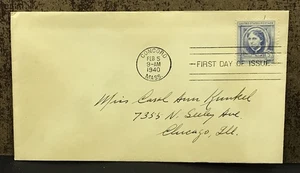 CONCORD
FEB 5
9-AM
1940
MASS.
FIRST DAY OF ISSUE
Miss Carol Ann Kunkel
7355 N. Seeley Ave
Chicago, Ill.